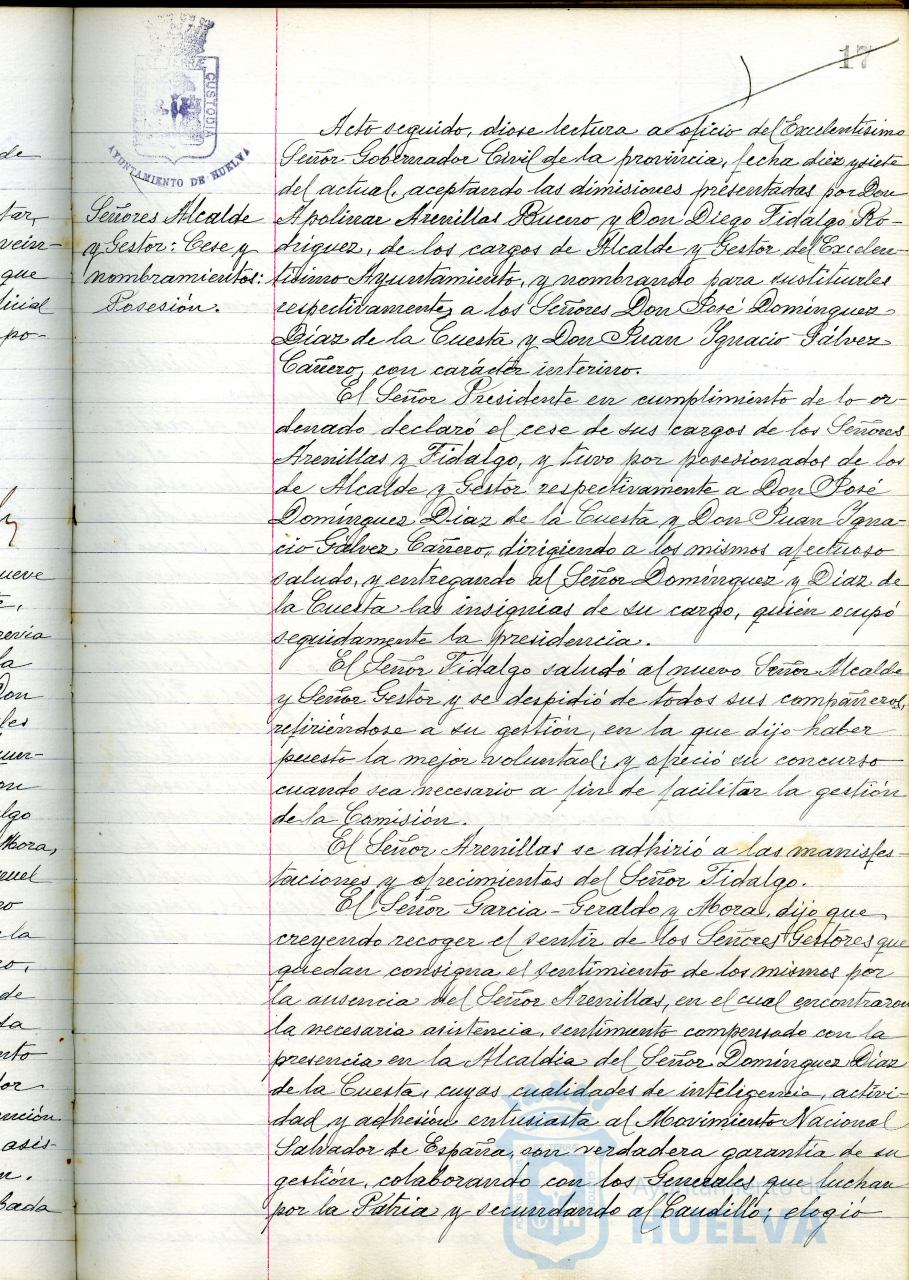 17
CUSTODIA
AYUNTAMIENTO DE HUELVA
Señores Alcalde
y Gestor: Cese y
nombramientos:
Posesión.
Acto seguido, diose lectura a oficio del Excelentísimo
Señor Gobernador Civil de la provincia, fecha diez y siete
del actual, aceptando las dimisiones presentadas por Don
Apolinar Arenillas Bueno y Don Diego Fidalgo Ro-
driguez, de los cargos de Alcalde y Gestor del Excelen-
tísimo Ayuntamiento, y nombrando para sustituirles
respectivamente, a los Señores Don José Domínguez
Díaz de la Cuesta y Don Juan Ignacio Gálvez
Cañero, con carácter interino.
El Señor Presidente en cumplimiento de lo or-
denado declaró el cese de sus cargos de los Señores
Arenillas y Fidalgo, y tuvo por posesionados de los
de Alcalde y Gestor respectivamente a Don José
Domínguez Díaz de la Cuesta y Don Juan Igna-
cio Gálvez Cañero, dirigiendo a los mismos afectuoso
saludo, y entregando al Señor Domínguez y Díaz de
la Cuesta las insignias de su cargo, quién ocupó
seguidamente la presidencia.
El Señor Fidalgo saludó al nuevo Señor Alcalde
y Señor Gestor y se despidió de todos sus compañeros,
refiriéndose a su gestión, en la que dijo haber
puesto la mejor voluntad; y ofreció su concurso
cuando sea necesario a fin de facilitar la gestión
de la Comisión.
El Señor Arenillas se adhirió a las manisfes-
taciones y ofrecimientos del Señor Fidalgo.
El Señor Garcia-Geraldo y Mora, dijo que
creyendo recoger el sentir de los Señores Gestores que
quedan consigna el sentimiento de los mismos por
la ausencia del Señor Arenillas, en el cual encontraron
la necesaria asistencia, sentimiento compensado con la
presencia en la Alcaldia del Señor Domínguez Díaz
de la Cuesta, cuyas cualidades de inteligencia, activi-
dad y adhesión entusiasta al Movimiento Nacional
Salvador de España, son verdadera garantía de su
gestión, colaborando con los Generales que luchan
por la Patria y secundando al Caudillo; elogió
Ayuntamiento de
HUELVA